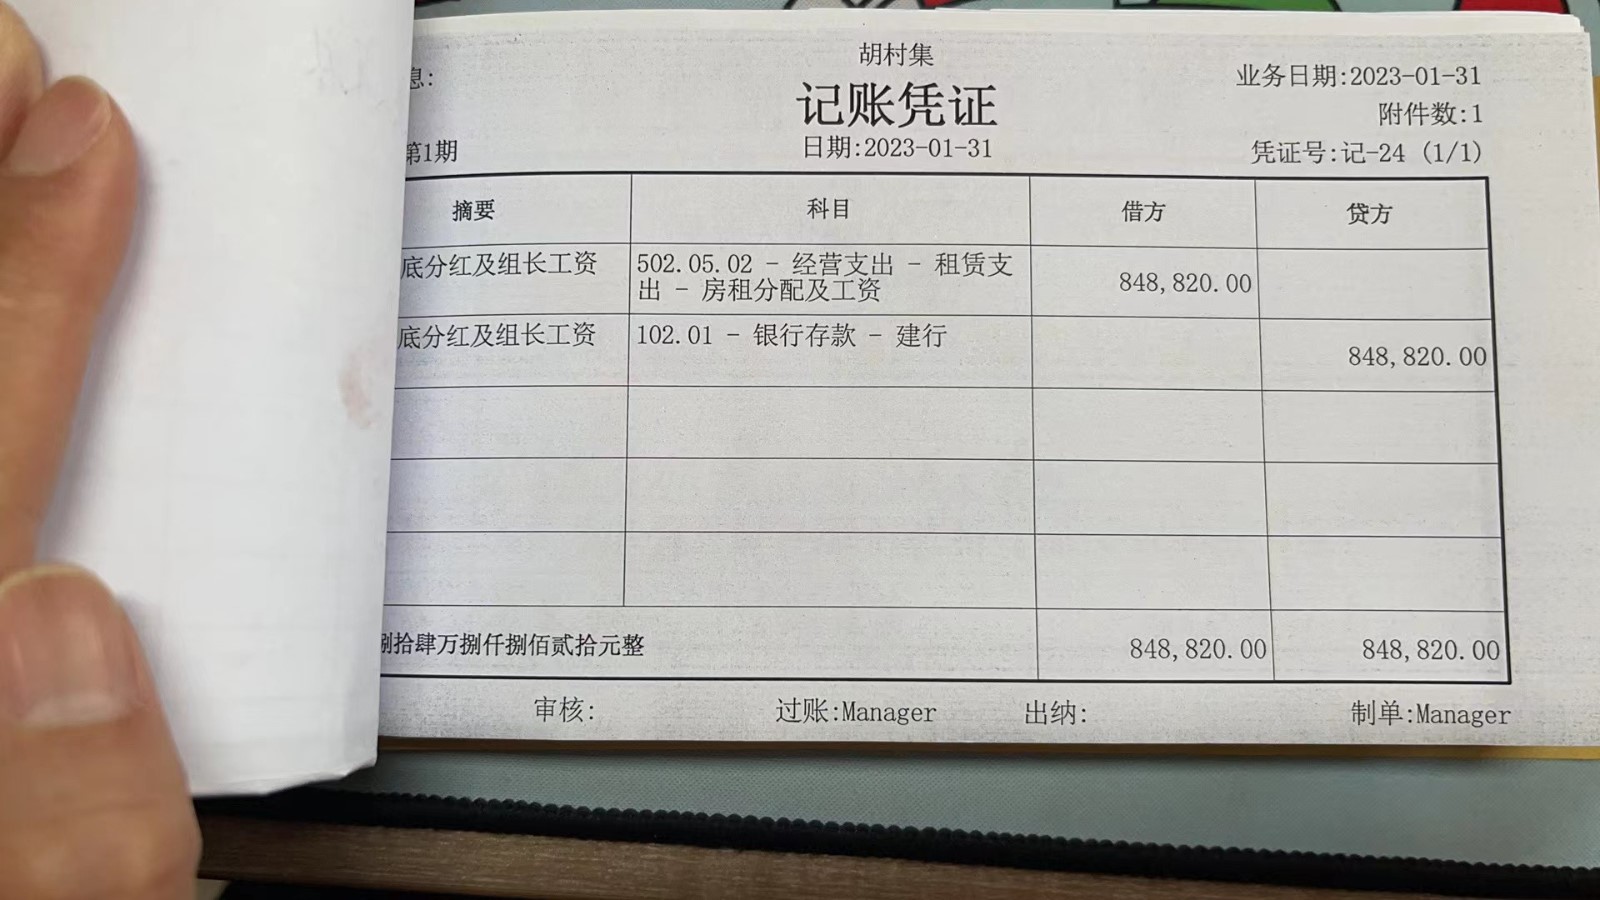 胡村集
息:
业务日期:2023-01-31
记账凭证
附件数:1
第1期
日期:2023-01-31
凭证号:记-24 (1/1)
摘要 科目 借方 贷方
底分红及组长工资 502.05.02 - 经营支出 - 租赁支
出 - 房租分配及工资 848,820.00
底分红及组长工资 102.01 - 银行存款 - 建行 848,820.00
捌拾肆万捌仟捌佰贰拾元整 848,820.00 848,820.00
审核: 过账:Manager 出纳: 制单:Manager